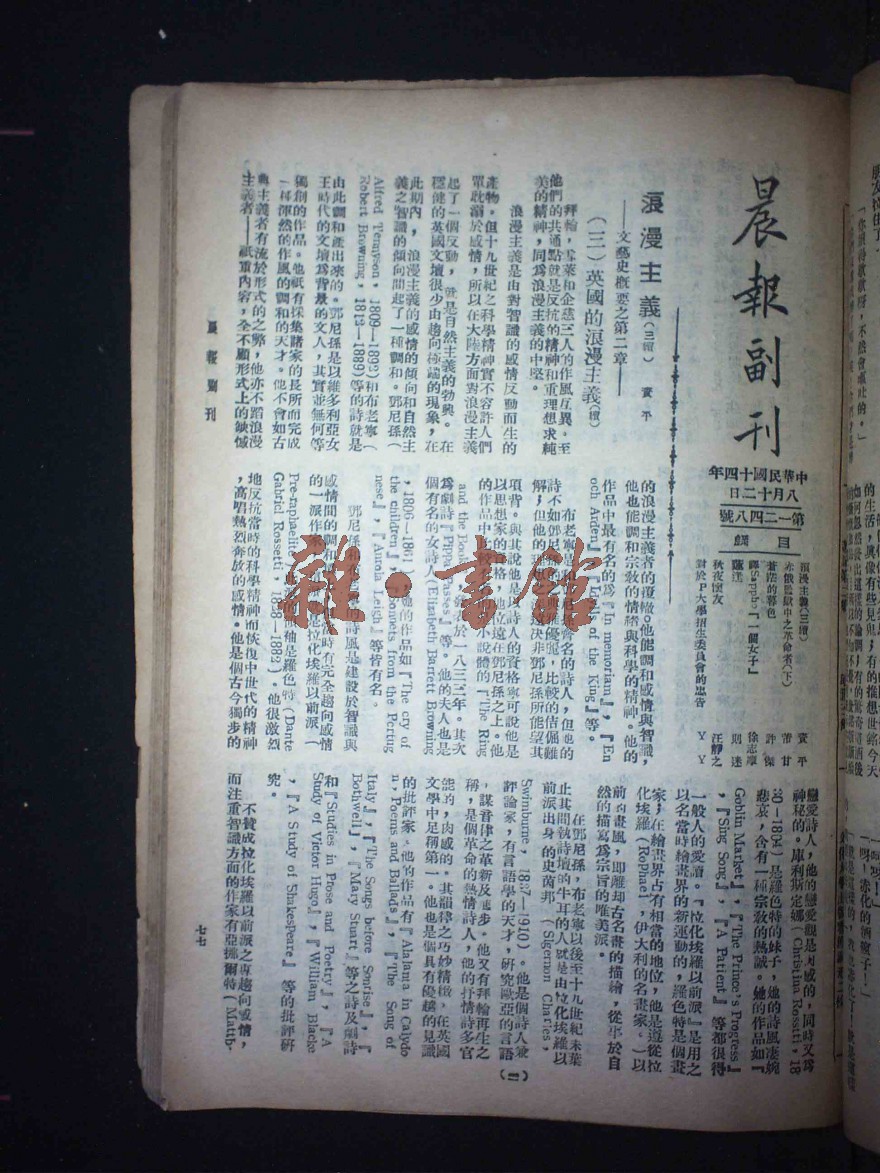 晨報副刊
中華民國十四年
八月十二日
第一二四八號
目錄
浪漫主義(三續) 資平
赤俄監獄中之革命者(下) 苦甘
蒼茫的暮色 許傑
譯Sappho『一個女子』 徐志摩
則迷
秋夜懷友 汪靜之
對於P大學招生委員會的忠告 Y Y
浪漫主義(三續) 資平
——文藝史概要之第二章——
(三)英國的浪漫主義(續)
拜輪,雪萊和企慈三人的作風互異。至
他們的共通點就是反抗的精神和重理想求純
美的精神,同為浪漫主義的中堅。
浪漫主義是由對智識的感情反動而生的
產物。但十九世紀之科學精神實不容許人們
單耽溺於感情,所以在大陸方面對浪漫主義
起了一個反動,就是自然主義的勃興。在
穩健的英國文壇很少由趨向極端的現象,在
此期內,浪漫主義的感情的傾向和自然主
義之智識的傾向間起了一種調和。鄧尼孫(
Alfred Tennyson, 1809—1892)和布老寧(
Robert Browning, 1812—1889)等的詩就是
由此調和產出來的。鄧尼孫是以維多利亞女
王時代的文壇為背景的文人,其實並無何等
獨創的作品。他祇有採集諸家的長所而完成
一種渾然的作風的調和的天才。他不會如古
典主義者有流於形式的之弊,他亦不蹈浪漫
主義者——祇重內容,全不顧形式上的缺憾
的浪漫主義者的覆轍。他能調和感情與智識,
他也能調和宗教的情緒與科學的精神。他的
作品中最有名的為『In memoriam』,『En
och Arden』,『Idyls of the King』等。
布老寧是和他齊名的詩人,但他的
詩不如鄧尼孫的典雅優麗,比較的佶倔難
解;但他的思想決非鄧尼孫所能望其
項背。與其說他是以詩人的資格寧可說他是
以思想家的資格,他位遠在鄧尼孫之上。他
的作品中比較有名的小說體的『The Ring
and the Book』,發表於一八三三年。其次
為劇詩『Pippa Passes』等。他的夫人也是
個有名的女詩人(Elizabeth Barrett Browning
,1806—1861),她的作品如『The cry of
the children』,『Sonnets from the Portug
nese』,『Aurora Leigh』等皆有名。
鄧尼孫和布老寧的詩風是建設於智識與
感情間的調和,同時有完全趨向感情
的一派作家,就是拉化埃羅以前派(
Pre-raphaelites),他的領袖是羅色特(Dante
Gabriel Rossetti, 1828—1882)。他很激烈
地反抗當時的科學精神而恢復中世代的精神
,高唱熱烈奔放的感情。他是個古今獨步的
戀愛詩人,他的戀愛觀是肉感的,同時又為
神秘的。庫利斯定娜(Christina Rossetti, 18
30—1894)是羅色特的妹子,她的詩風凄婉
悲哀,含有一種宗教的熱誠。她的作品如『
Goblin Market』,『The Prince's Progress』
,『Sing Song』,『A Patient』等都很得
一般人的愛讀。『拉化埃羅以前派』是用之
以名當時繪畫界的新運動的,羅色特是個畫
家,在繪畫界占有相當的地位,他是遵從拉
化埃羅(Rophael,伊大利的名畫家。)以
前的畫風,即離却古名畫的描繪,從事於自
然的描寫為宗旨的唯美派。
在鄧尼孫,布老寧以後至十九世紀末葉
止其間執詩壇的牛耳的人就是由拉化埃羅以
前派出身的史茵邦(Slgernon Charles,
Swinburne, 1837—1910)。他是個詩人兼
評論家,有言語學的天才,研究歐亞的言語
,謀音律之革新及進步。他又有拜輪再生之
稱,是個革命的熱情詩人,他的抒情詩多官
能的,肉感的。其韻律之巧妙精緻,在英國
文學中足稱第一。他也是個具有優越的見識
的批評家。他的作品有『Atalanta in Calydo
n, Poems and Ballads』,『The Song of
Italy』,『The Songs before Sonrise』,『
Bothwell』,『Mary Stuart』等之詩及劇詩
和『Studies in Prose and Poetry』,『A
Study of Victor Hugo』,『William Blacke
,『A Study of Shakespeare』等的批評研
究。
不贊成拉化埃羅以前派之專趨向感情,
而注重智識方面的作家有亞挪爾特(Matth-
晨報副刊
七七
雜·書館